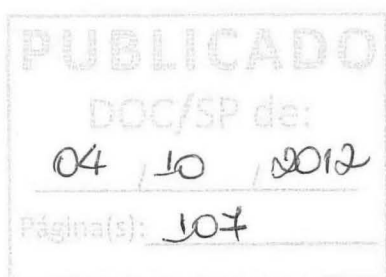 PUBLICADO
DOC/SP de:
04 / 10 / 2012
Página(s): 107